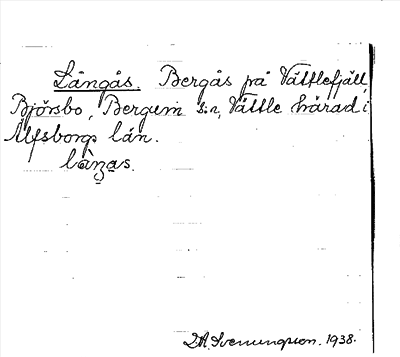 Långås. Bergås på Vättlefjäll
Björsbo, Bergum s:n, Vättle härad i
Älfsborgs län.
làŋas.
D.A. Svenungsson. 1938.